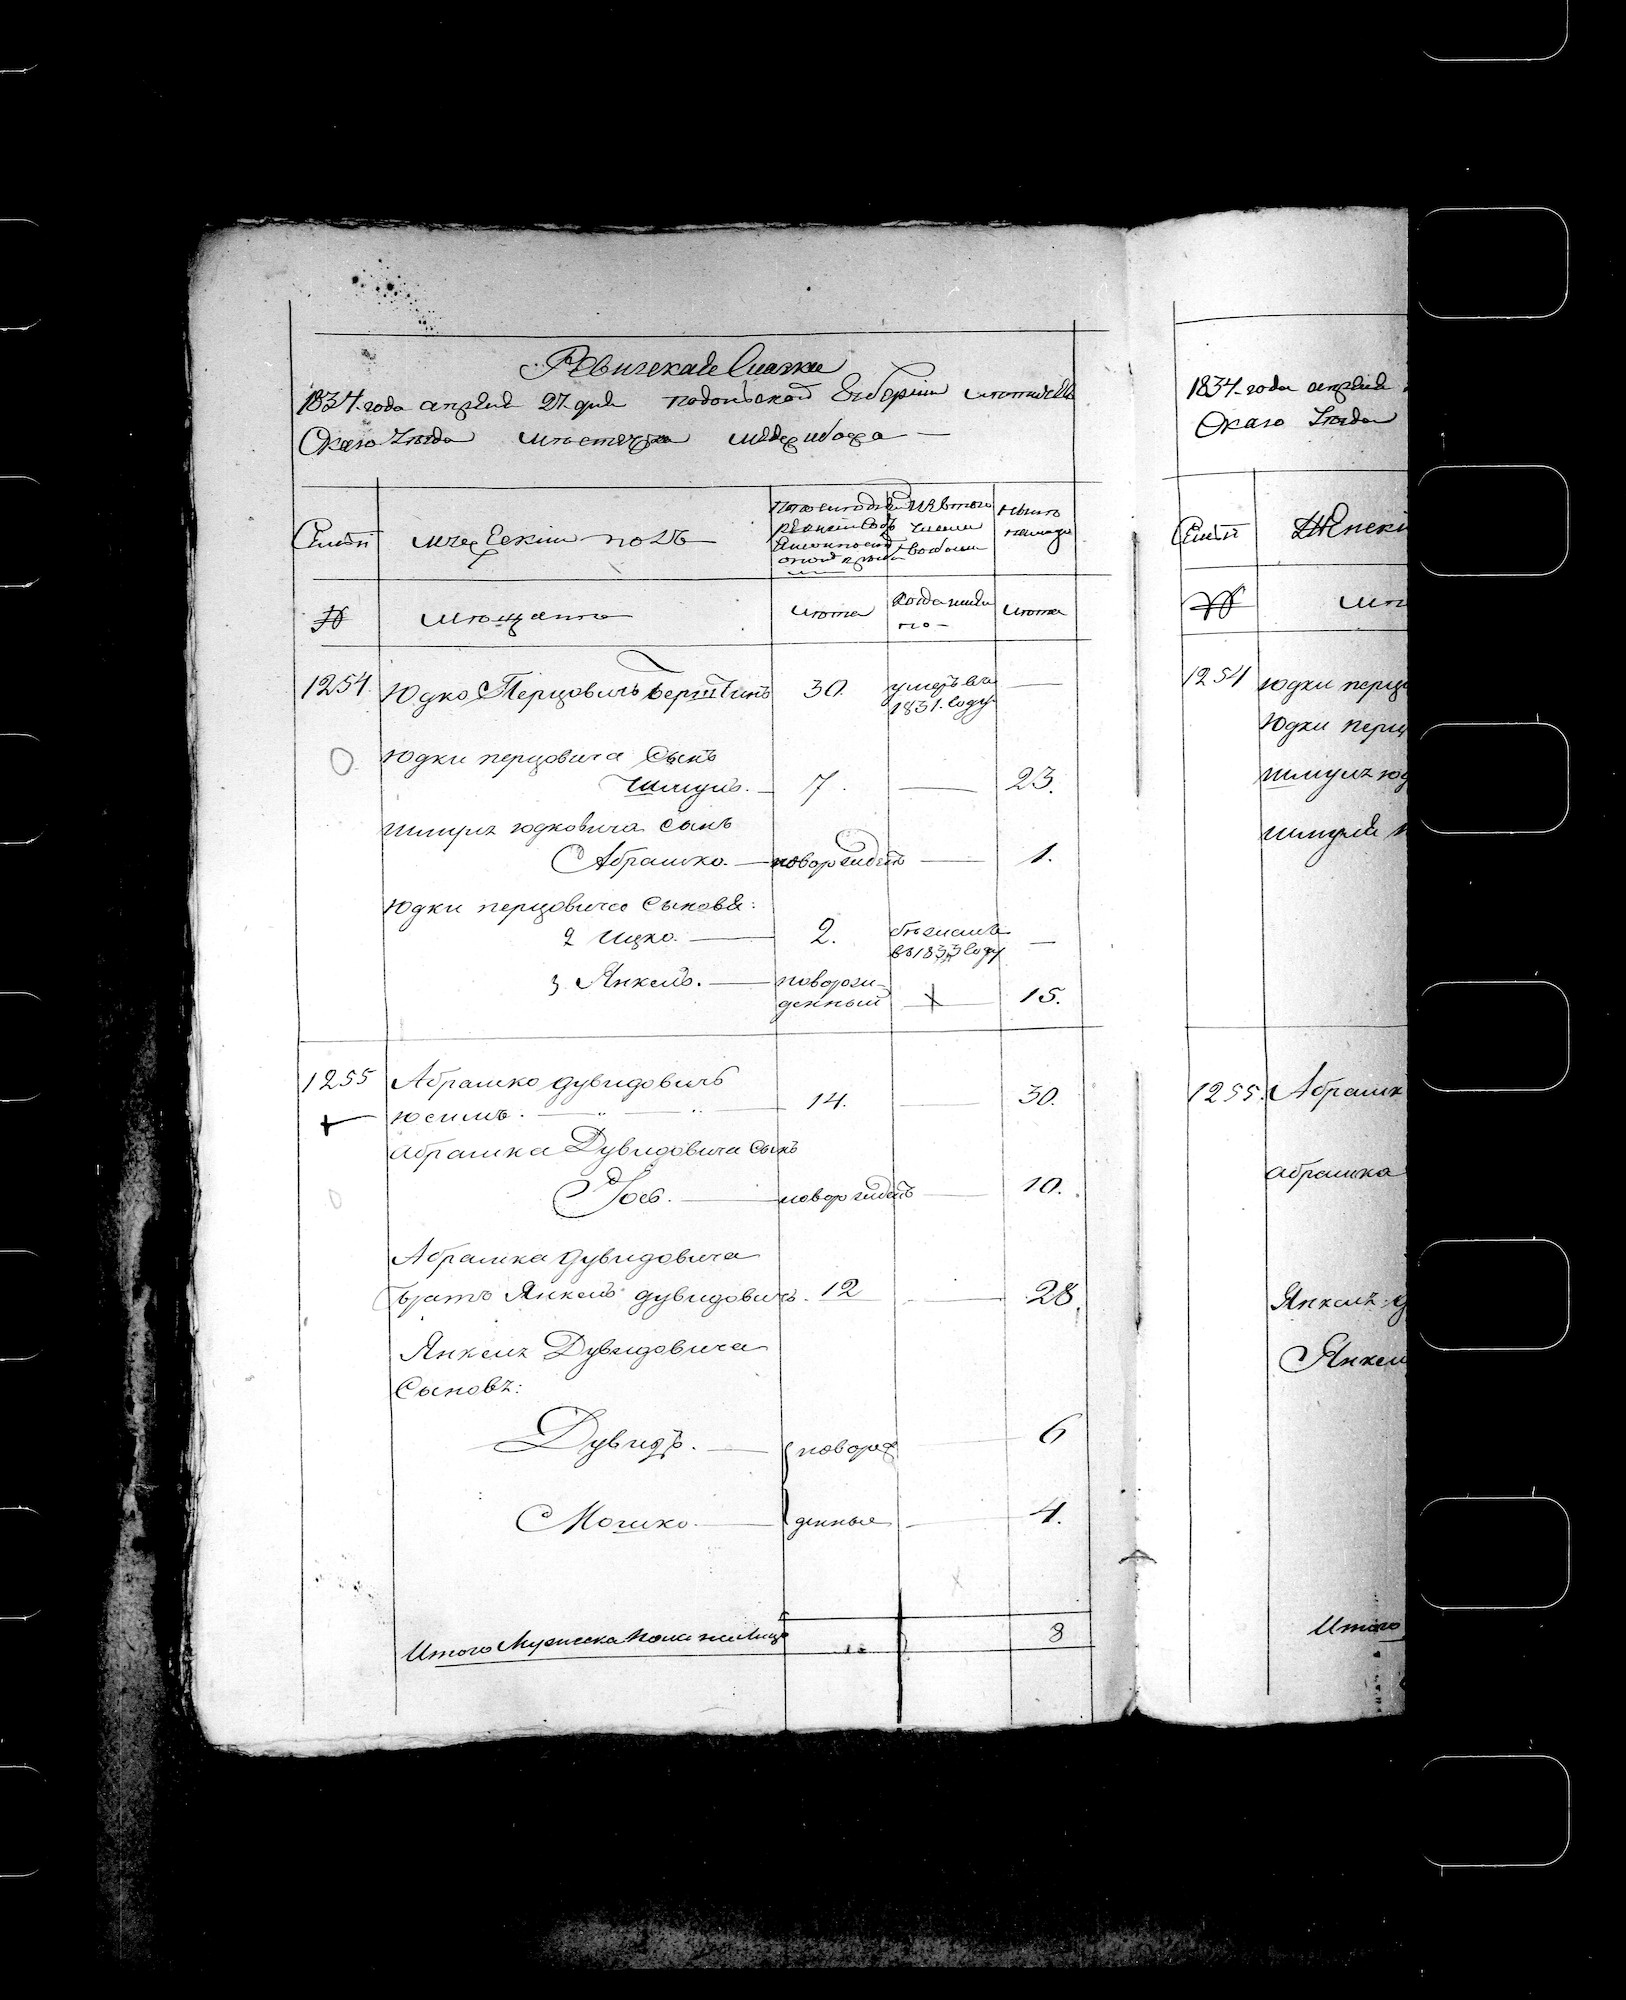 Ревизская Сказка
1834. года апреля 27. дня Подольской Губернии Летичев
Скаго Уезда местечка Меджибожа —
Семьи
мужеский полъ
изъ того числа выбыли
ныне налицо
№
мещане
лета
когда именно
лета
1254. Юдко Перцовичъ Берштинъ 30. умеръ въ 1831. году —
Юдки перцовича Сынъ
Шмуль. — 7. — 23.
Шмуля юдковича Сынъ
Абрашко. — новорожден — 1.
Юдки перцовича Сыновья:
2 Ицко. — 2. бежалъ в 1833 году —
3 Янкель. — новорож-
денный — 15.
1255 Абрашко дувидовичъ
юсимъ. — 14. — 30.
абрашка Дувидовича сынъ
Иось. — новорожден — 10.
Абрашка дувидовича
братъ Янкель дувидовичъ. 12 — 28.
Янкеля Дувидовича
Сыновья:
Дувидъ. — новорож — 6
Мошко. — денные — 4.
Итого Мужеска пола налицо 8
1834. года апреля
Скаго Уезда
Семьи
Женски
№
ме
1254 юдки перцо
Юдки перц
шмуля юд
шмуля
1255. Абрашк
абрашка
Янкеля д
Янкел
Итого